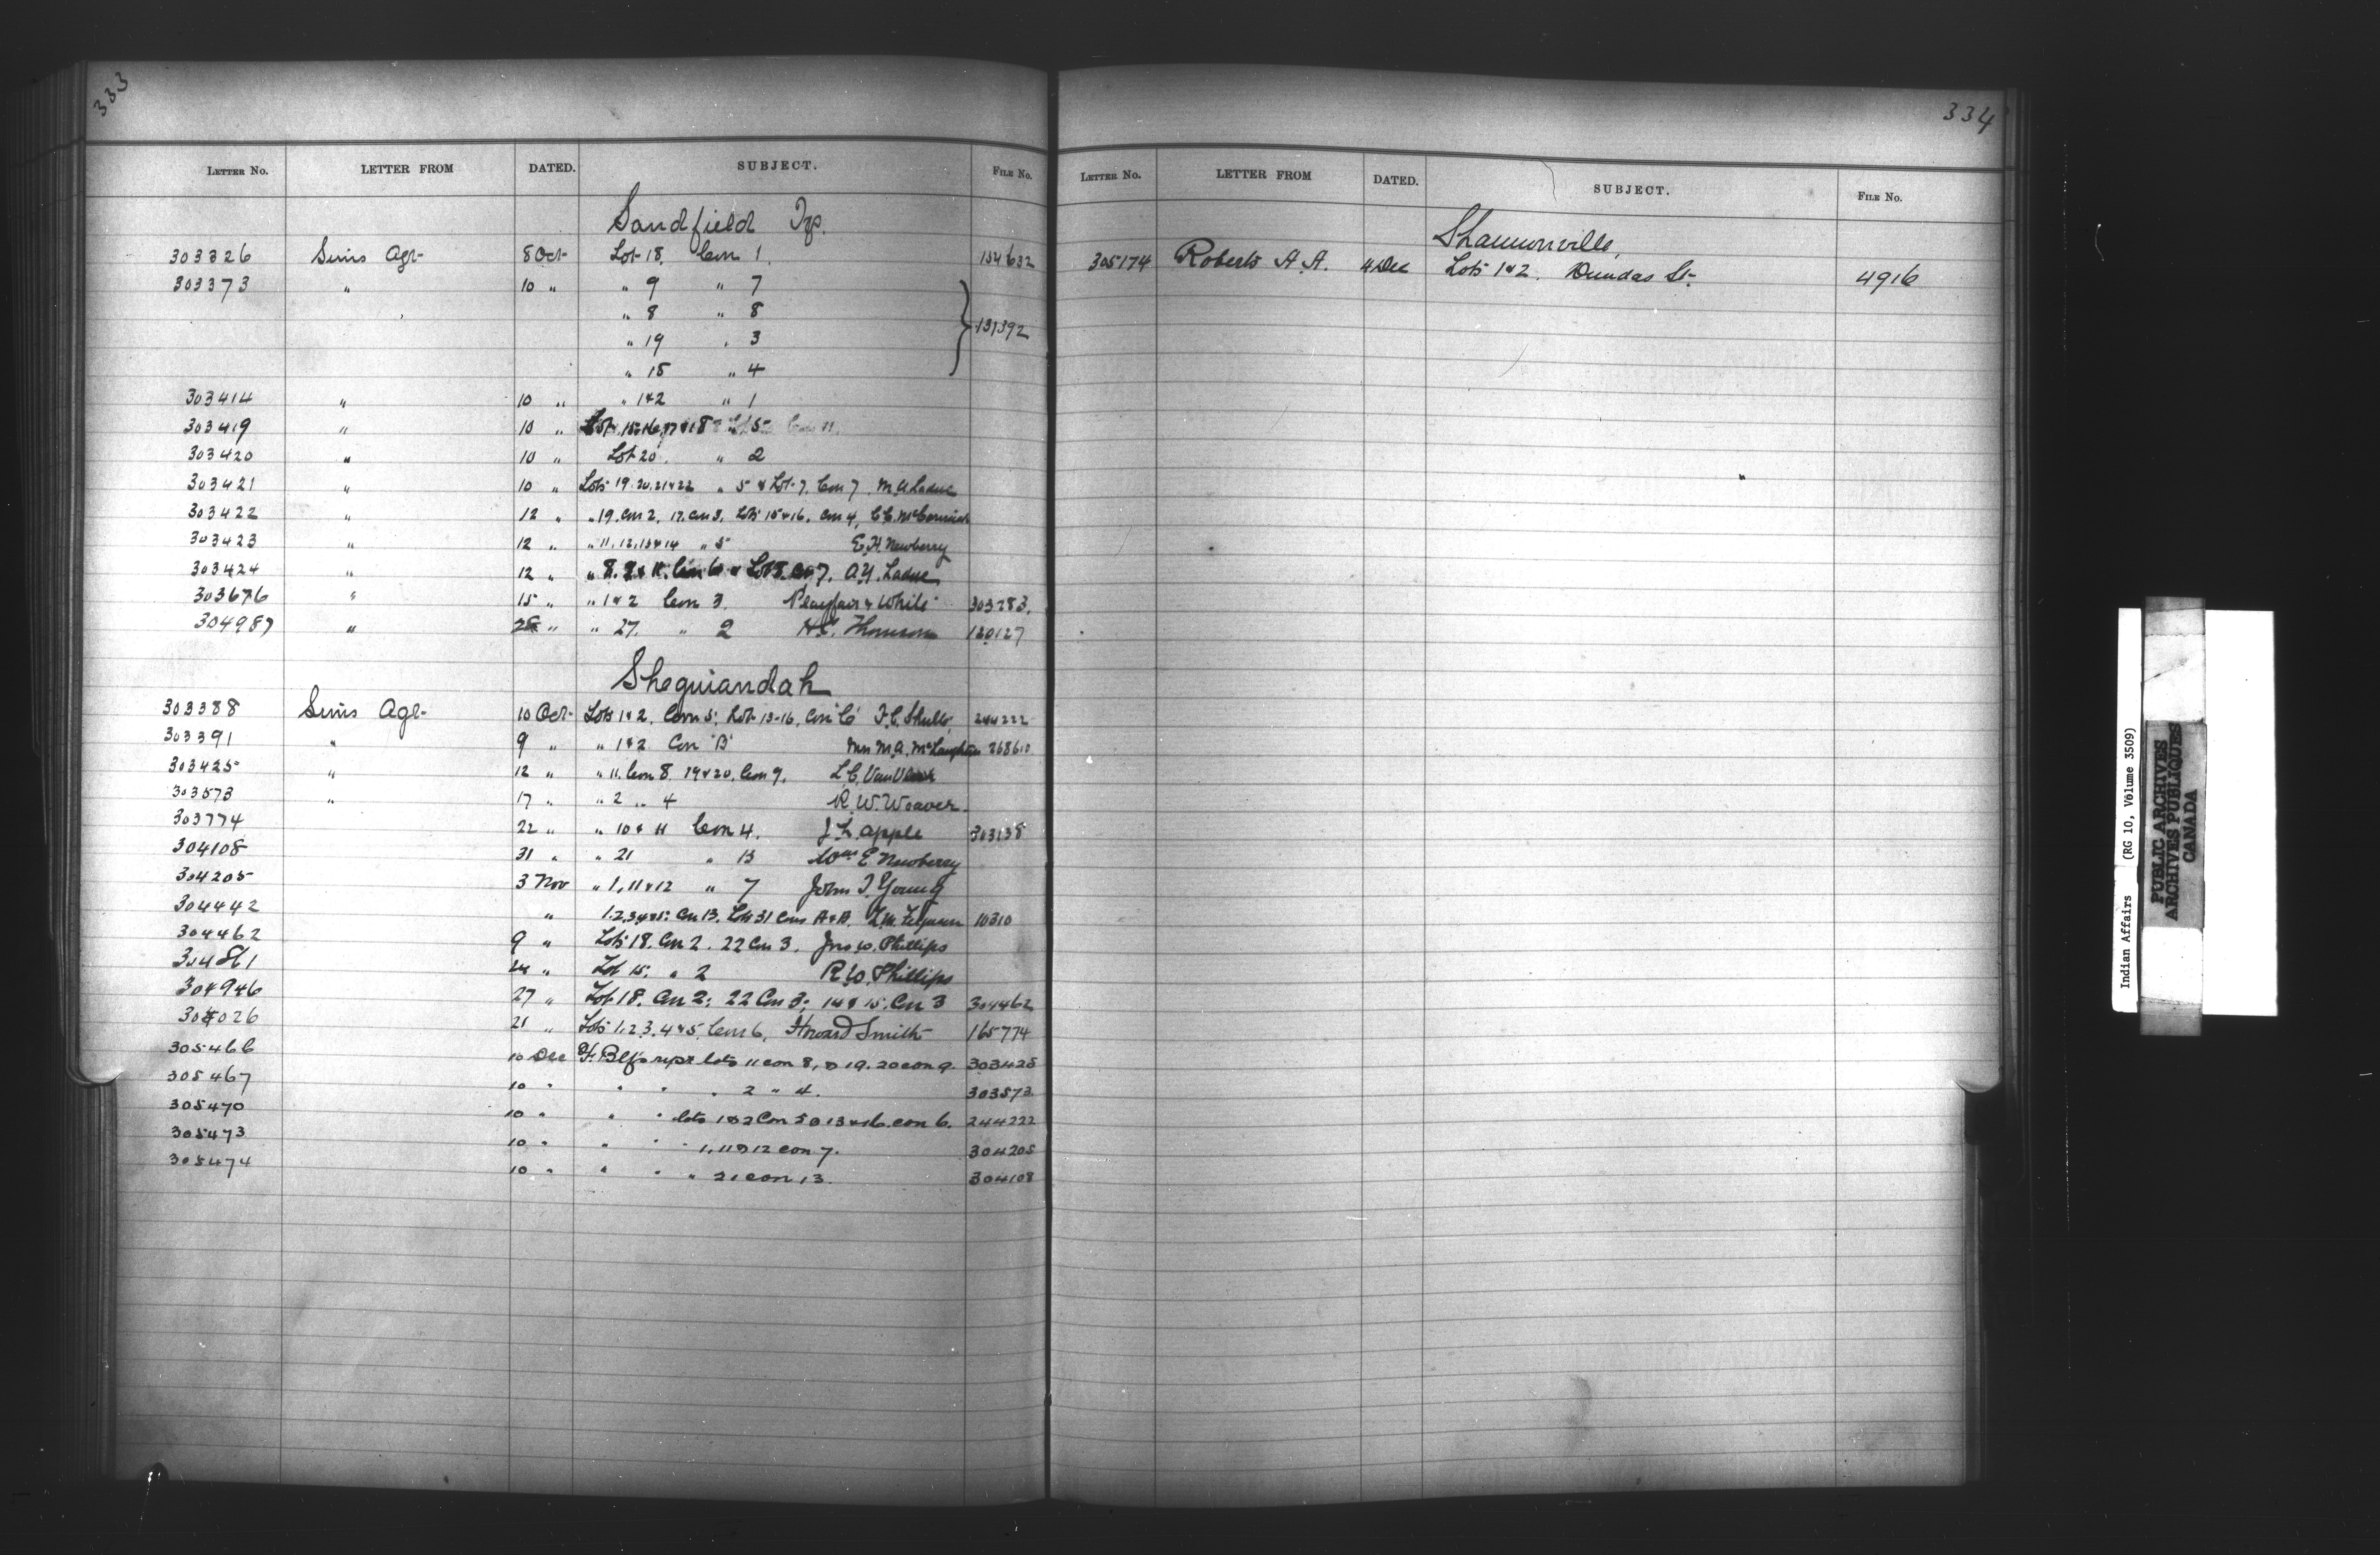 333
LETTER No. LETTER FROM DATED. SUBJECT. FILE No.
Sandfield Tp.
303326 Sims Agt 8 Oct Lot 18, Con 1. 154632
303373 " 10 " " 9 " 7
" 8 " 8
131392
" 19 " 3
" 15 " 4
303414 " 10 " " 1&2 " 1
303419 " 10 " Lots 15.16,17&18 " 5 Con 11
303420 " 10 " Lot 20. " 2
303421 " 10 " Lots 19.20.21&22 " 5 & Lot 7, Con 7. M. A Ladue
303422 " 12 " " 19. Con 2, 17. Con 3, Lots 15&16, Con 4, C.C. McCormick
303423 " 12 " " 11, 12, 13&14 " 5 E. H. Newberry
303424 " 12 " " 8. 9 & 11. Con 6 & Lot 8. Con 7. A.Y. Ladue
303676 " 15 " " 1&2 Con 3. Playfair & White 303283.
304987 " 28 " " 27. " 2 Thomson 120127
Sheguiandah
303388 Sims Agt 10 Oct Lots 1&2, Con 5; Lot 13-16, Con 6 F.C. 244222
303391 " 9 " " 1&2 Con "B" Mrs M.A. McLaughlin 268610
303425 " 12 " " 11. Con 8. 19&20. Con 9. L.C. VanVleck
303573 " 17 " " 2 " 4 R. W. Weaver.
303774 22 " " 10 & 11 Con 4. J L. Apple 303138
304108 31 " " 21 " 13 Wm E Newberry
304205 3 Nov " 1, 11&12 " 7 John I. Young
304442 " 1.2.3.4&5: Con 13. Lot 31 Cons A&B. 10310
304462 9 " Lots 18. Con 2. 22 Con 3. Jno W. Phillips
304861 24 " Lot 15. " 2 R. W. Phillips
304946 27 " Lot 18. Con 2; 22 Con 3; 14 & 15. Con 3 304462
305026 21 " Lots 1.2.3.4&5 Con 6. Howard Smith 165774
305466 10 Dec lots 11 con 8, & 19. 20 con 9. 303425
305467 10 " " " " 2 " 4. 303573
305470 10 " " " lots 1&2 Con 5 & 13&16. con 6. 244222
305473 10 " " " " 1, 11&12 con 7. 304205
305474 10 " " " " 21 con 13. 304108
334
LETTER No. LETTER FROM DATED. SUBJECT. FILE No.
Shannonville,
305174 Roberts A. A. 4 Dec Lots 1&2. Dundas St. 4916
Indian Affairs (RG 10, Volume 3509)
PUBLIC ARCHIVES
ARCHIVES PUBLIQUES
CANADA